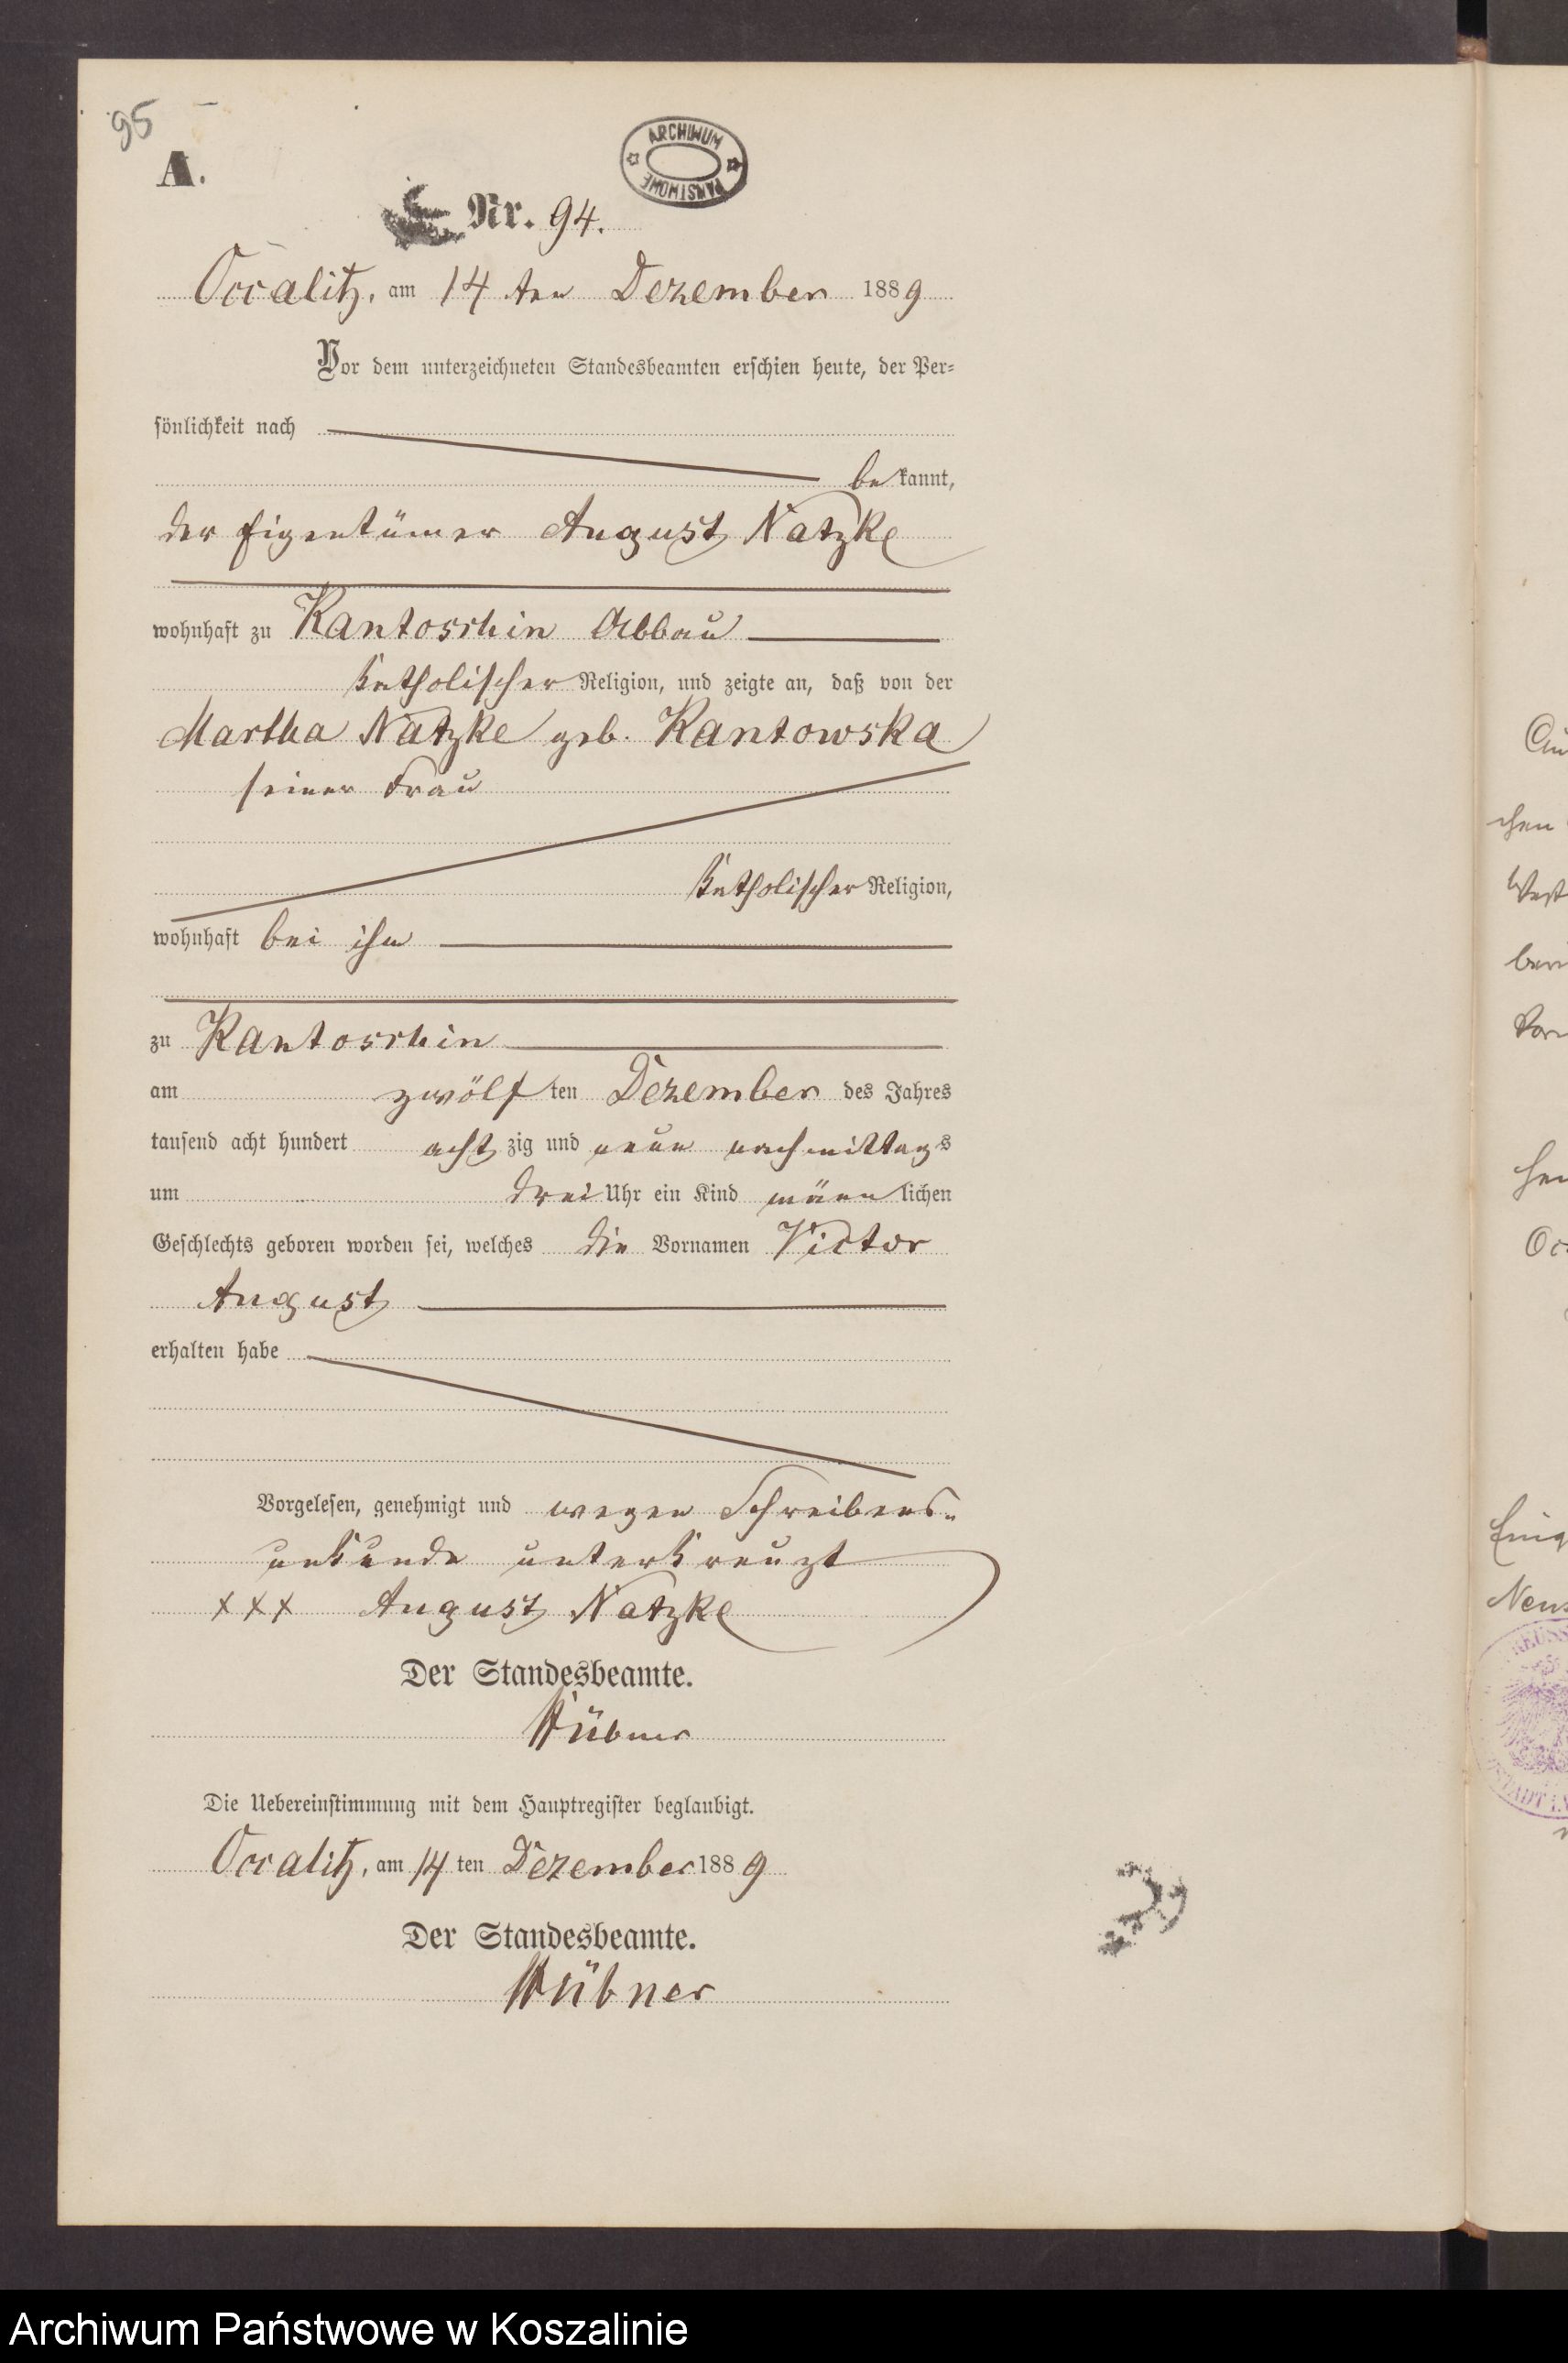 95
A.
ARCHIWUM PAŃSTWOWE
Nr. 94.
Occalitz, am 14 ten Dezember 1889
Vor dem unterzeichneten Standesbeamten erschien heute, der Per-
sönlichkeit nach
bekannt,
der Eigentümer August Natzke
wohnhaft zu Kantoschin Abbau
katholischer Religion, und zeigte an, daß von der
Martha Natzke geb. Kantowska
seiner Frau
katholischer Religion,
wohnhaft bei ihm
zu Kantoschin
am zwölften Dezember des Jahres
tausend acht hundert achtzig und neun nachmittags
um drei Uhr ein Kind männlichen
Geschlechts geboren worden sei, welches die Vornamen Victor
August
erhalten habe
Vorgelesen, genehmigt und wegen Schreibens-
unkunde unterkreuzt
xxx August Natzke
Der Standesbeamte.
Hübner
Die Uebereinstimmung mit dem Hauptregister beglaubigt.
Occalitz, am 14 ten Dezember 1889
Der Standesbeamte.
Hübner
Archiwum Państwowe w Koszalinie